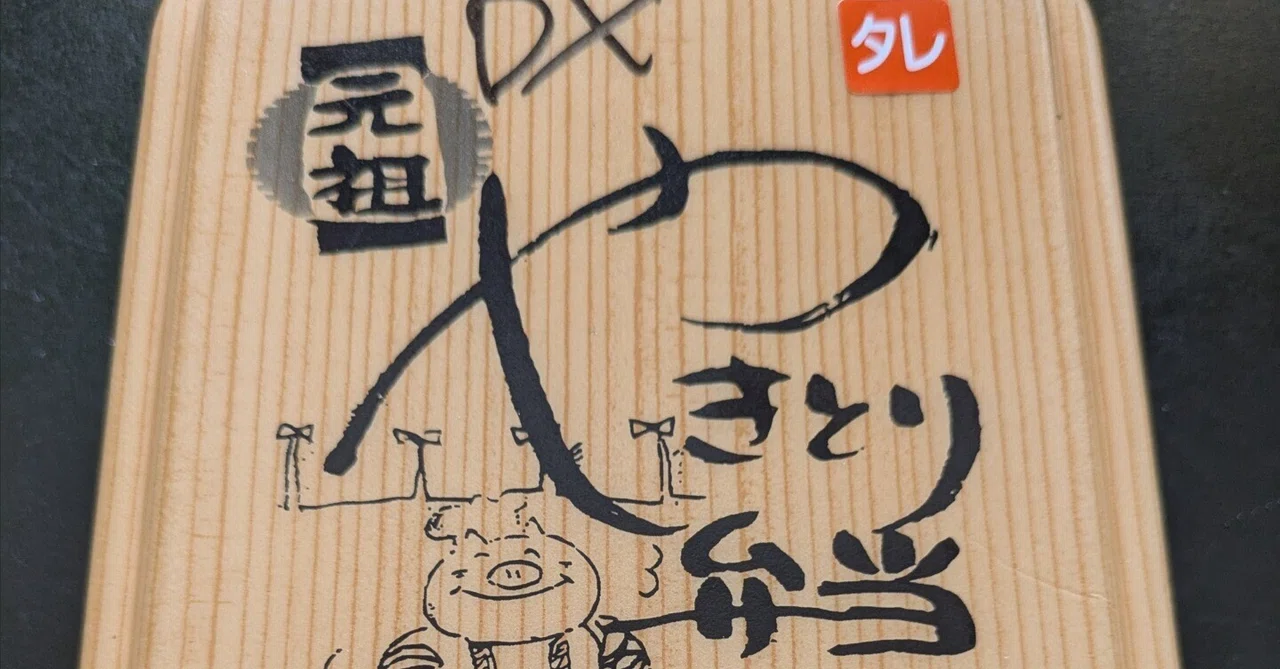 DX
タレ
元祖
やきとり
弁当